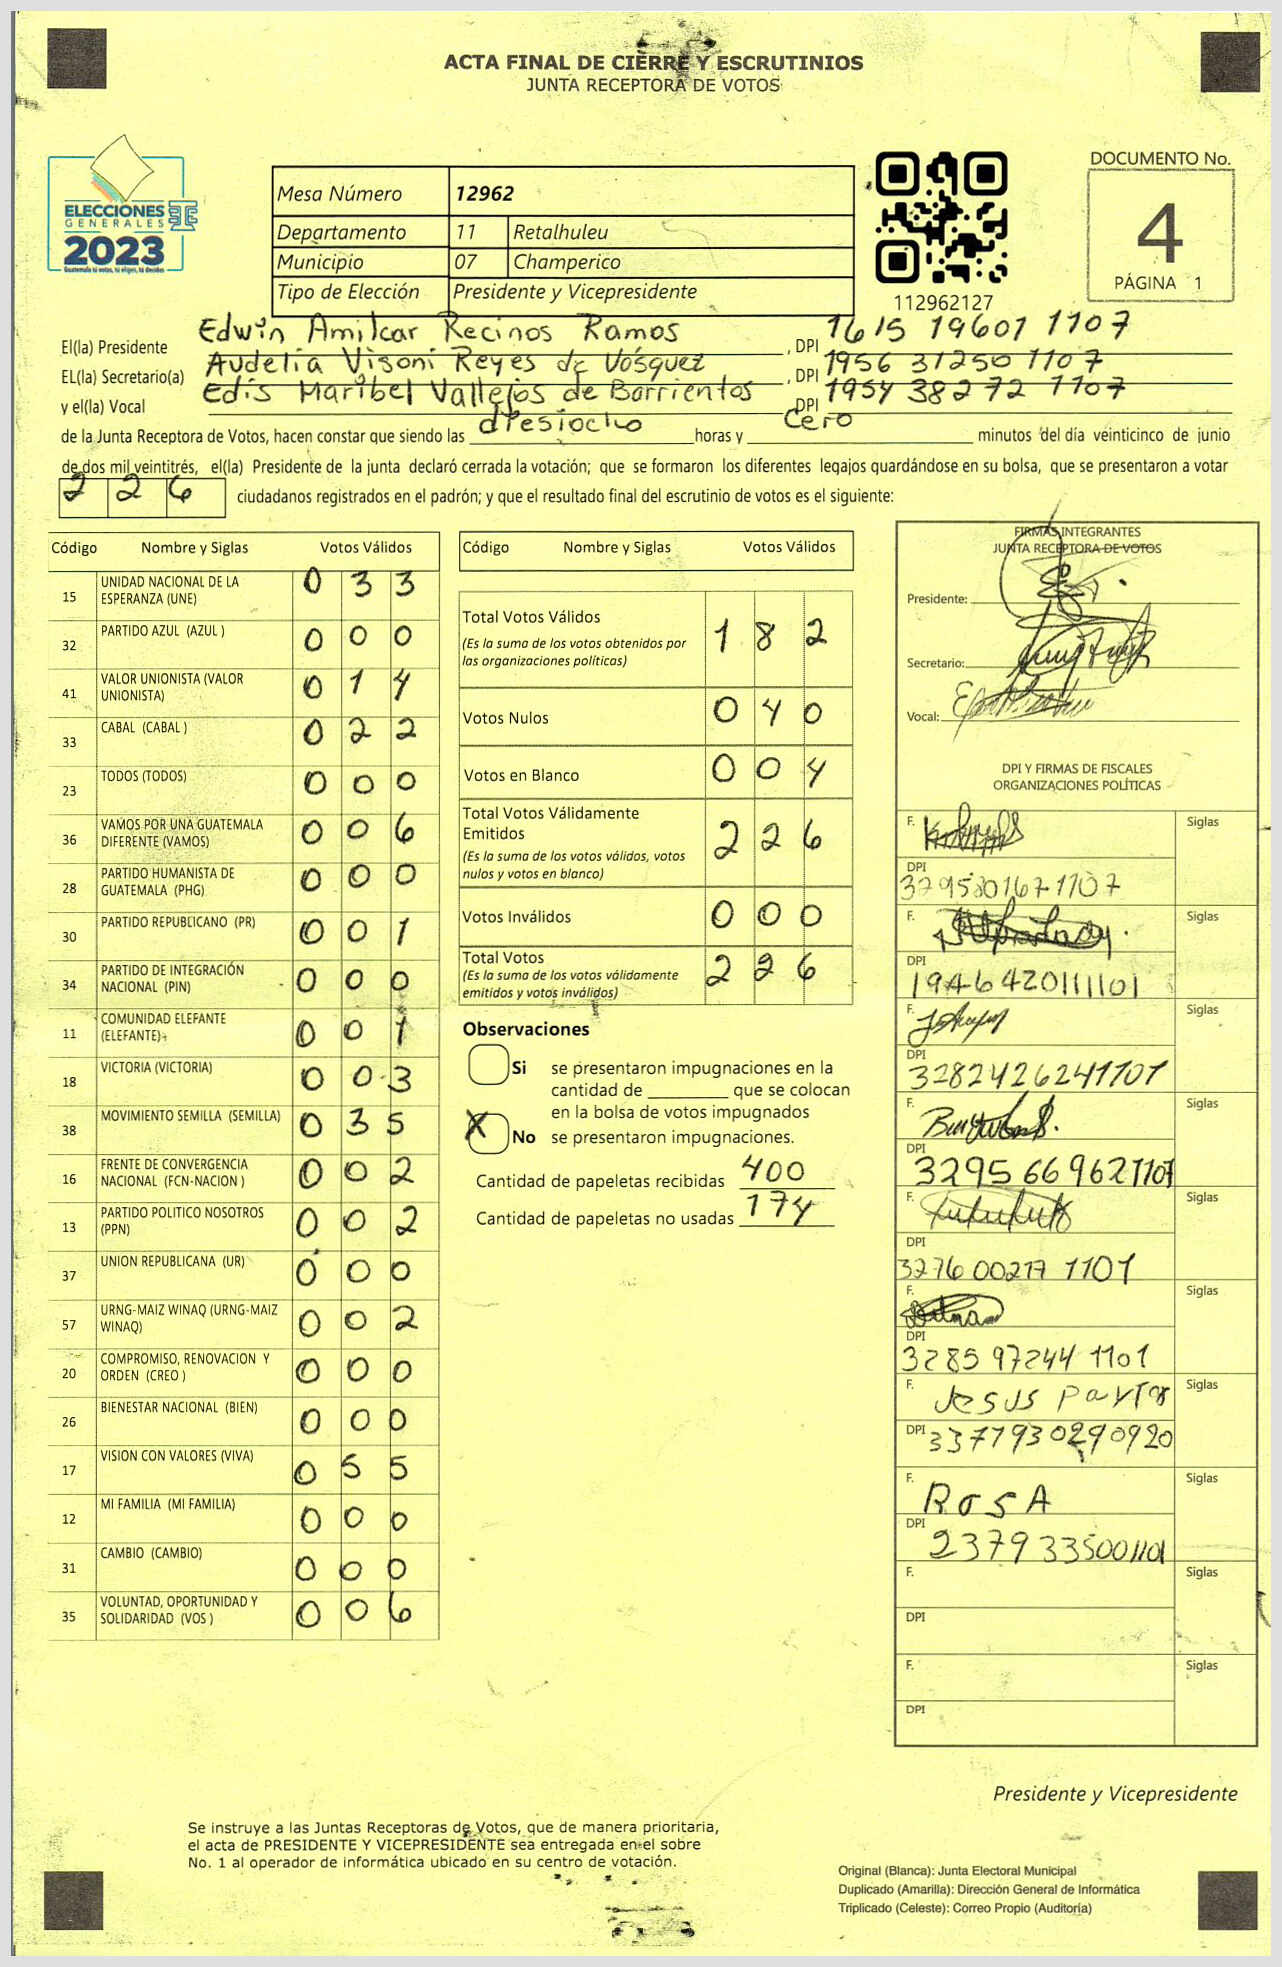 ACTA FINAL DE CIERRE Y ESCRUTINIOS
JUNTA RECEPTORA DE VOTOS
ELECCIONES
GENERALES
2023
Guatemala tú votas, tú eliges, tú decides
Mesa Número 12962
Departamento 11 Retalhuleu
Municipio 07 Champerico
Tipo de Elección Presidente y Vicepresidente
112962127
DOCUMENTO No.
4
PÁGINA 1
El(la) Presidente Edwin Amilcar Recinos Ramos , DPI 1615 19601 1107
EL(la) Secretario(a) Audelia Visoni Reyes de Vósquez , DPI 1956 31250 1107
y el(la) Vocal Edis Maribel Vallejos de Barrientos DPI 1954 38272 1107
de la Junta Receptora de Votos, hacen constar que siendo las diesiocho horas y Cero minutos del día veinticinco de junio
de dos mil veintitrés, el(la) Presidente de la junta declaró cerrada la votación; que se formaron los diferentes legajos guardándose en su bolsa, que se presentaron a votar
226 ciudadanos registrados en el padrón; y que el resultado final del escrutinio de votos es el siguiente:
Código Nombre y Siglas Votos Válidos
15 UNIDAD NACIONAL DE LA ESPERANZA (UNE) 0 3 3
32 PARTIDO AZUL (AZUL ) 0 0 0
41 VALOR UNIONISTA (VALOR UNIONISTA) 0 1 4
33 CABAL (CABAL ) 0 2 2
23 TODOS (TODOS) 0 0 0
36 VAMOS POR UNA GUATEMALA DIFERENTE (VAMOS) 0 0 6
28 PARTIDO HUMANISTA DE GUATEMALA (PHG) 0 0 0
30 PARTIDO REPUBLICANO (PR) 0 0 1
34 PARTIDO DE INTEGRACIÓN NACIONAL (PIN) 0 0 0
11 COMUNIDAD ELEFANTE (ELEFANTE) 0 0 1
18 VICTORIA (VICTORIA) 0 0 3
38 MOVIMIENTO SEMILLA (SEMILLA) 0 3 5
16 FRENTE DE CONVERGENCIA NACIONAL (FCN-NACION ) 0 0 2
13 PARTIDO POLITICO NOSOTROS (PPN) 0 0 2
37 UNION REPUBLICANA (UR) 0 0 0
57 URNG-MAIZ WINAQ (URNG-MAIZ WINAQ) 0 0 2
20 COMPROMISO, RENOVACION Y ORDEN (CREO ) 0 0 0
26 BIENESTAR NACIONAL (BIEN) 0 0 0
17 VISION CON VALORES (VIVA) 0 5 5
12 MI FAMILIA (MI FAMILIA) 0 0 0
31 CAMBIO (CAMBIO) 0 0 0
35 VOLUNTAD, OPORTUNIDAD Y SOLIDARIDAD (VOS ) 0 0 6
Código Nombre y Siglas Votos Válidos
Total Votos Válidos 1 8 2
(Es la suma de los votos obtenidos por
las organizaciones políticas)
Votos Nulos 0 4 0
Votos en Blanco 0 0 4
Total Votos Válidamente
Emitidos 2 2 6
(Es la suma de los votos válidos, votos
nulos y votos en blanco)
Votos Inválidos 0 0 0
Total Votos 2 2 6
(Es la suma de los votos válidamente
emitidos y votos inválidos)
Observaciones
Si se presentaron impugnaciones en la
cantidad de ________ que se colocan
en la bolsa de votos impugnados
X No se presentaron impugnaciones.
Cantidad de papeletas recibidas 400
Cantidad de papeletas no usadas 174
FIRMAS INTEGRANTES
JUNTA RECEPTORA DE VOTOS
Presidente:
Secretario:
Vocal:
DPI Y FIRMAS DE FISCALES
ORGANIZACIONES POLÍTICAS
F. Siglas
DPI 3295301671107
F. Siglas
DPI 1946420111101
F. Siglas
DPI 3282426241101
F. Siglas
DPI 3295 66962 1107
F. Siglas
DPI 3276 00217 1101
F. Siglas
DPI 3285 97244 1101
F. Jesus Siglas
DPI 3377930290920
F. Rosa Siglas
DPI 2379 33500 1101
F. Siglas
DPI
F. Siglas
DPI
Presidente y Vicepresidente
Se instruye a las Juntas Receptoras de Votos, que de manera prioritaria,
el acta de PRESIDENTE Y VICEPRESIDENTE sea entregada en el sobre
No. 1 al operador de informática ubicado en su centro de votación.
Original (Blanca): Junta Electoral Municipal
Duplicado (Amarilla): Dirección General de Informática
Triplicado (Celeste): Correo Propio (Auditoría)